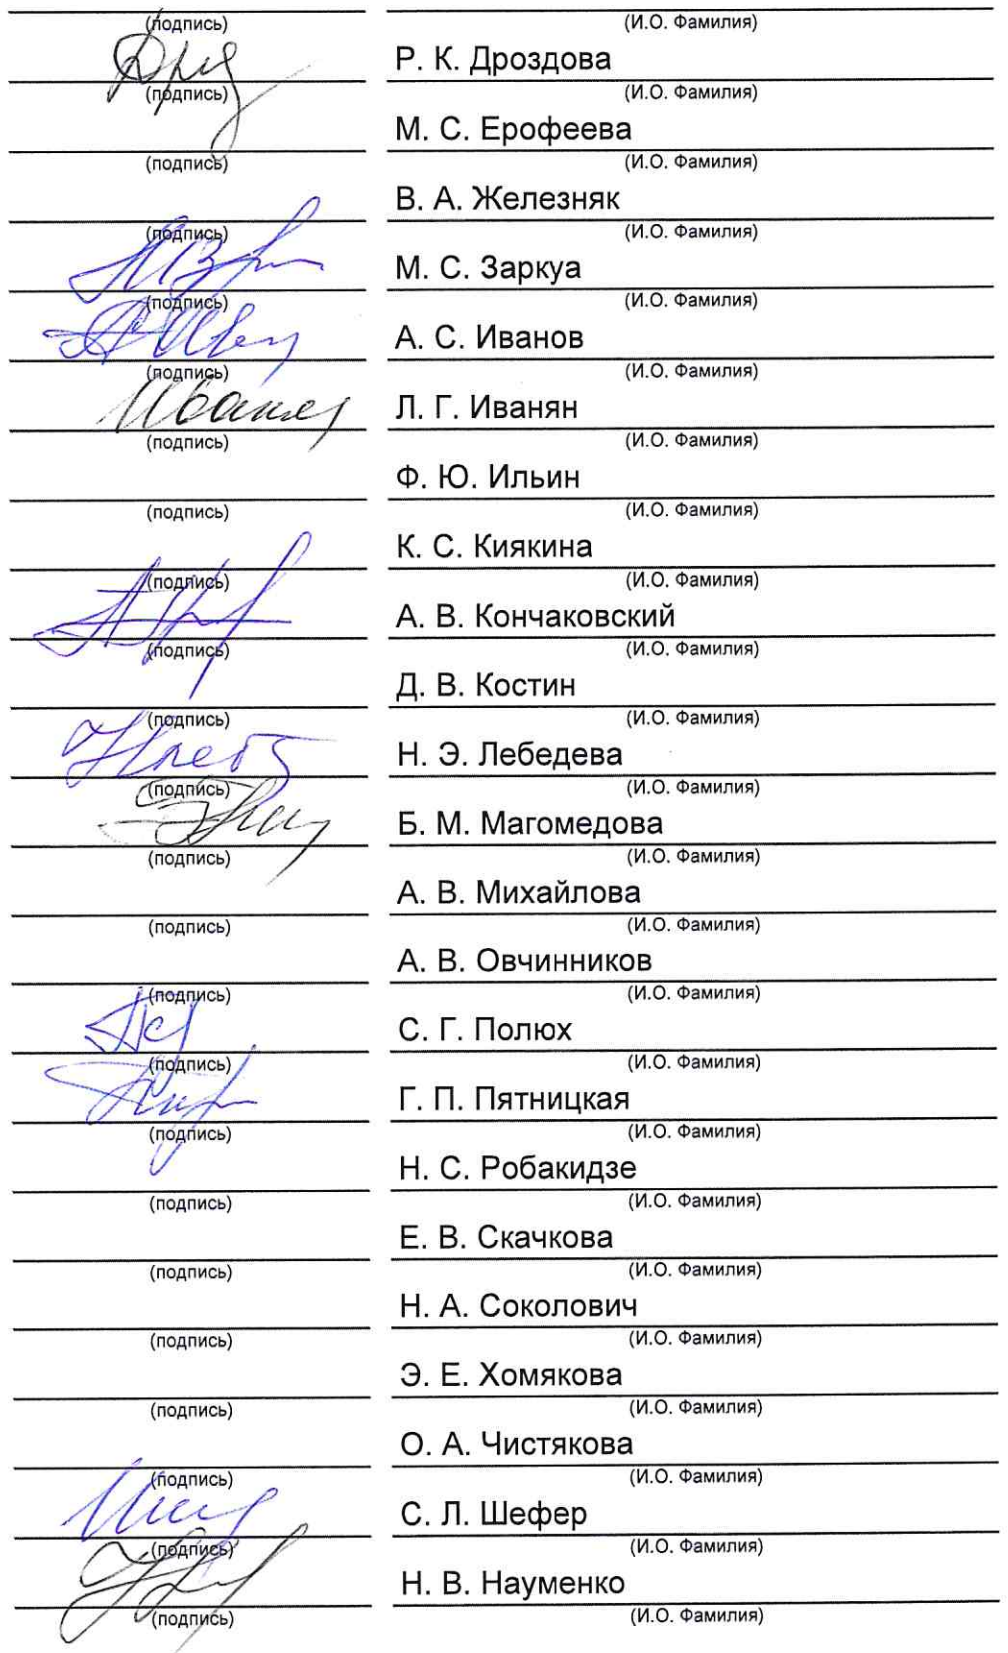 (подпись) (И.О. Фамилия)
Р. К. Дроздова
(подпись) (И.О. Фамилия)
М. С. Ерофеева
(подпись) (И.О. Фамилия)
В. А. Железняк
(подпись) (И.О. Фамилия)
М. С. Заркуа
(подпись) (И.О. Фамилия)
А. С. Иванов
(подпись) (И.О. Фамилия)
Иванян Л. Г. Иванян
(подпись) (И.О. Фамилия)
Ф. Ю. Ильин
(подпись) (И.О. Фамилия)
К. С. Киякина
(подпись) (И.О. Фамилия)
А. В. Кончаковский
(подпись) (И.О. Фамилия)
Д. В. Костин
(подпись) (И.О. Фамилия)
Н. Э. Лебедева
(подпись) (И.О. Фамилия)
Б. М. Магомедова
(подпись) (И.О. Фамилия)
А. В. Михайлова
(подпись) (И.О. Фамилия)
А. В. Овчинников
(подпись) (И.О. Фамилия)
С. Г. Полюх
(подпись) (И.О. Фамилия)
Г. П. Пятницкая
(подпись) (И.О. Фамилия)
Н. С. Робакидзе
(подпись) (И.О. Фамилия)
Е. В. Скачкова
(подпись) (И.О. Фамилия)
Н. А. Соколович
(подпись) (И.О. Фамилия)
Э. Е. Хомякова
(подпись) (И.О. Фамилия)
О. А. Чистякова
(подпись) (И.О. Фамилия)
С. Л. Шефер
(подпись) (И.О. Фамилия)
Н. В. Науменко
(подпись) (И.О. Фамилия)